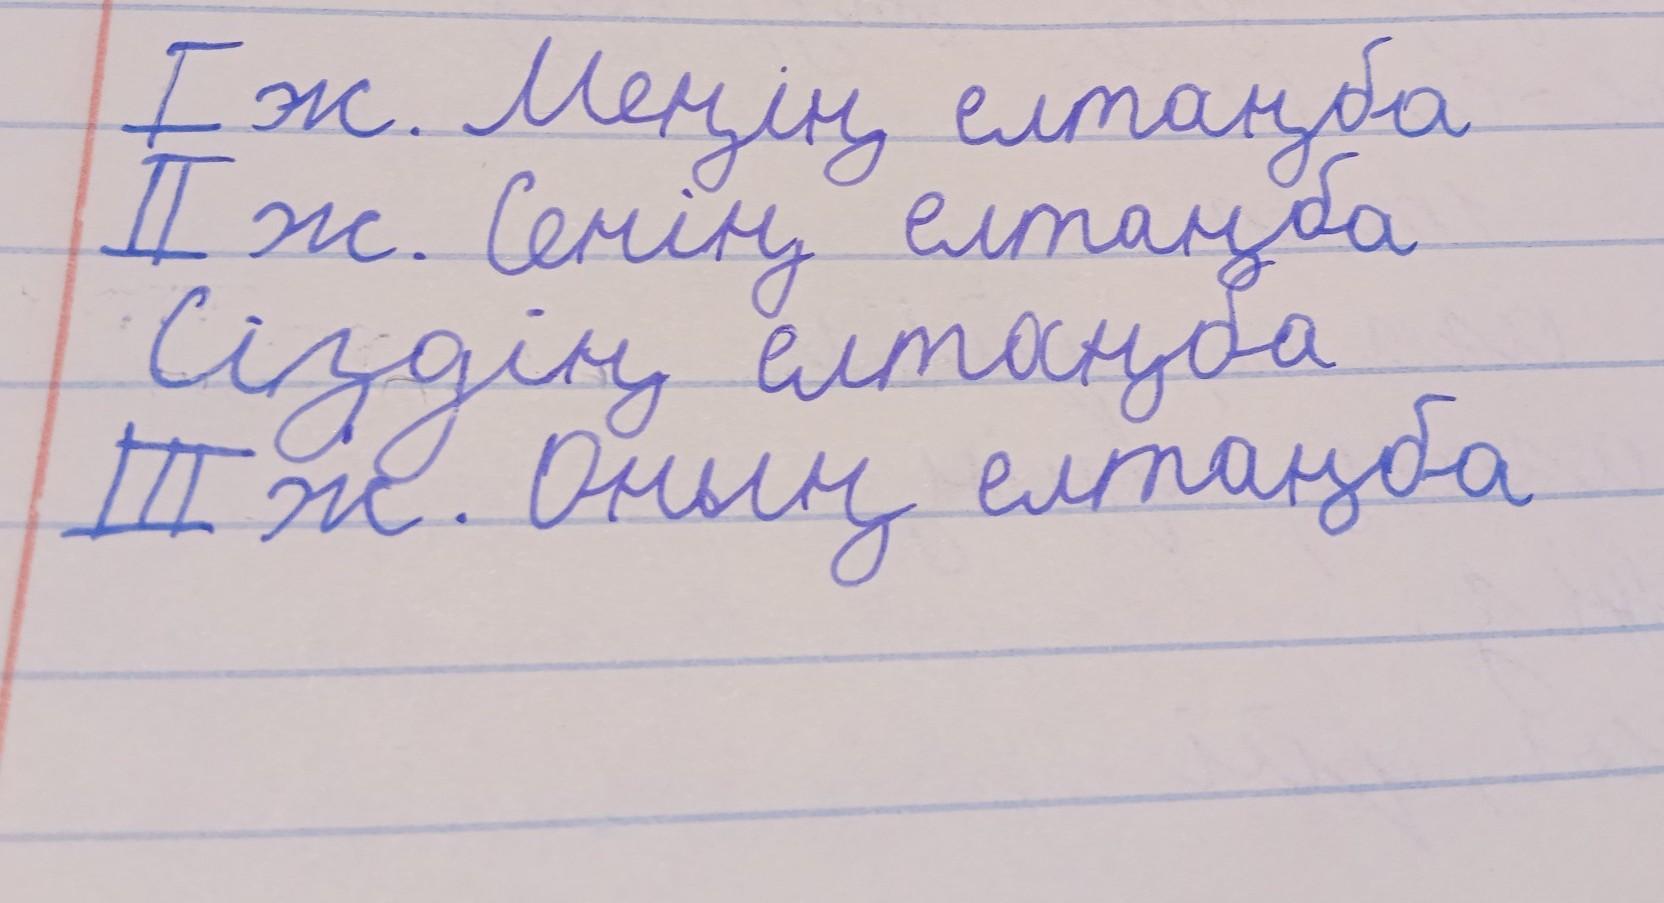 I ж. Меңің елтаңба
II ж. Сенің елтаңба
Сіздің елтаңба
III ж. Оның елтаңба